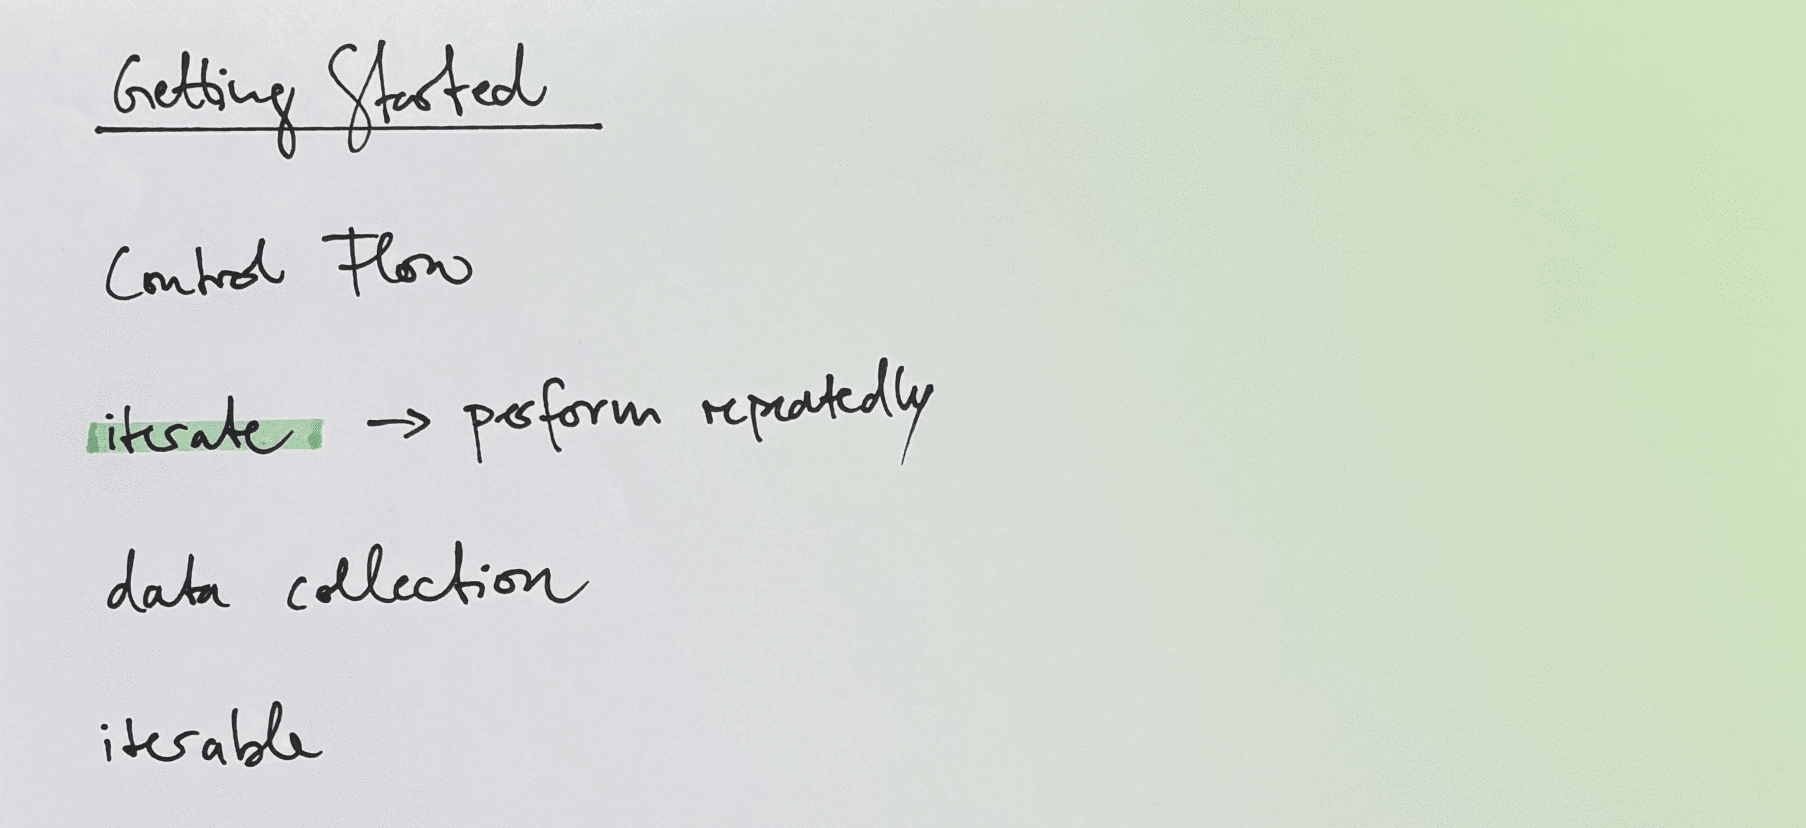 Getting Started
Control Flow
iterate → perform repeatedly
data collection
iterable